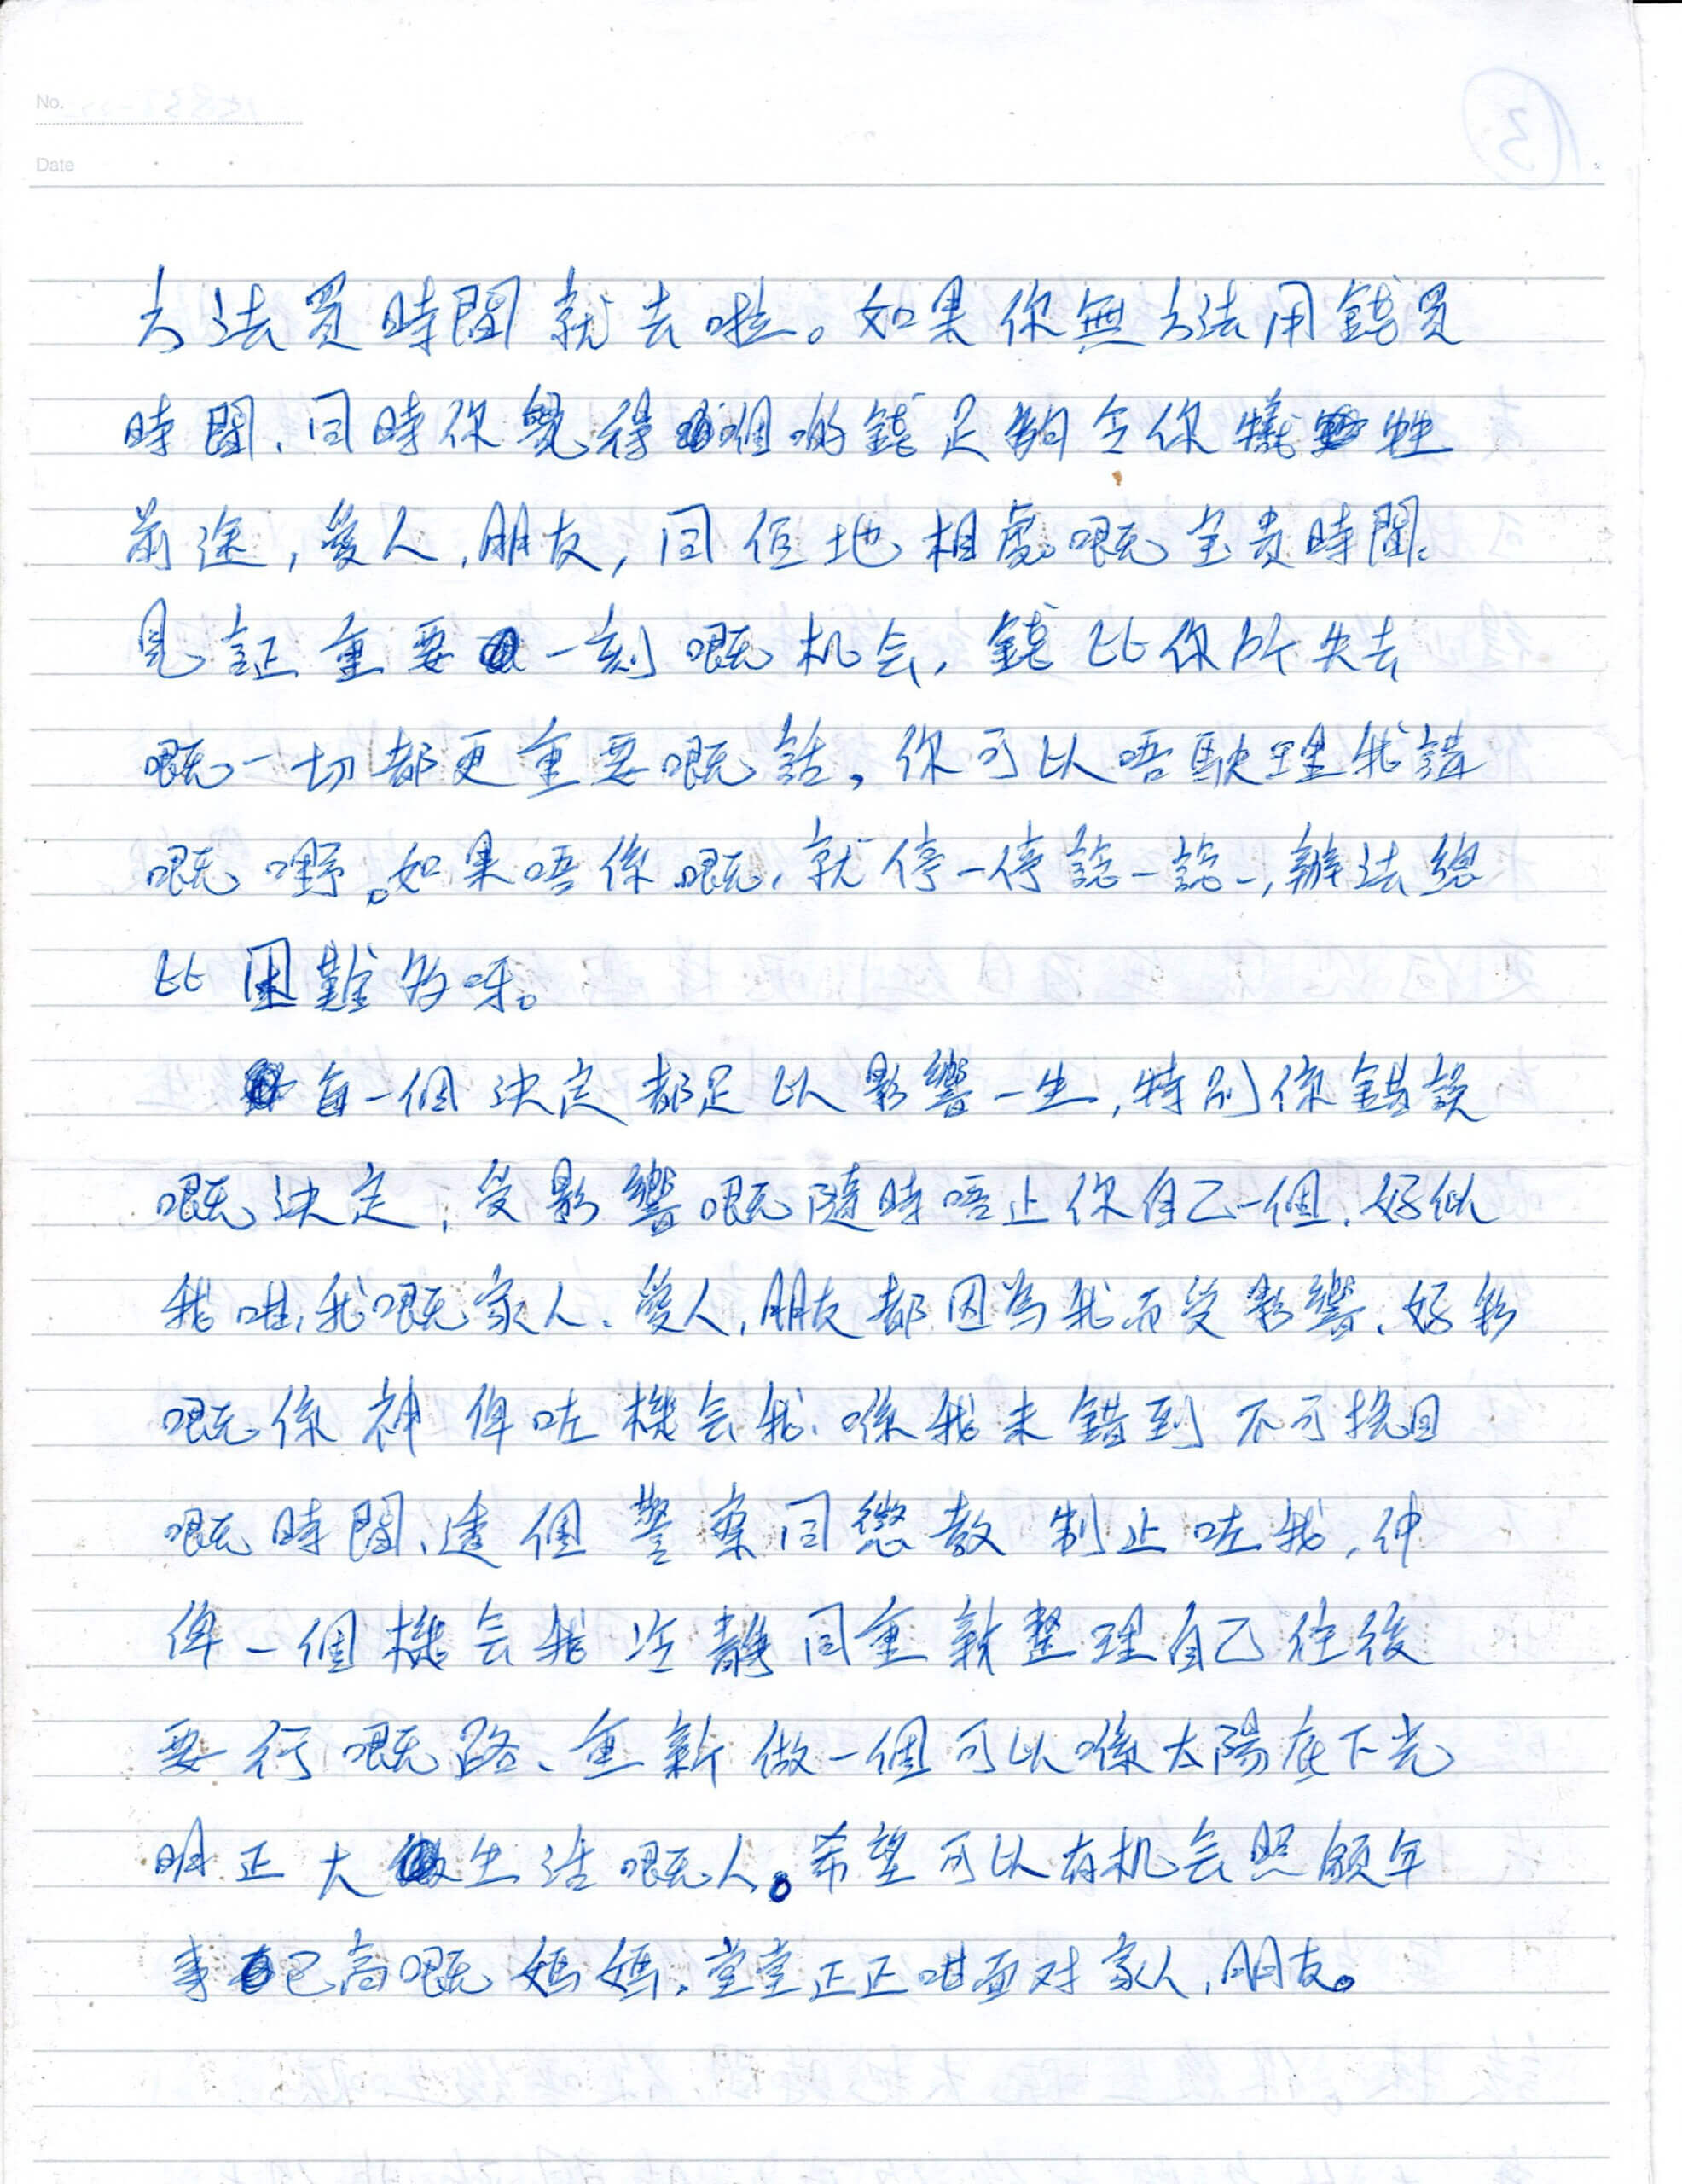 No.
Date
方法買時間就去啦。如果你無方法用錢買
時間、同時你覺得個啲錢足夠令你犧牲
前途,愛人,朋友,同佢地相處嘅宝贵時間、
見証重要一刻嘅机会,錢比你所失去
嘅一切都更重要嘅話,你可以唔駛理我講
嘅嘢。如果唔係嘅,就停一停諗一諗,辦法總
比困難多呀。
每一個決定都足以影響一生,特別係錯誤
嘅決定,受影響嘅隨時唔止你自己一個、好似
我咁,我嘅家人、愛人,朋友都因為我而受影響、好彩
嘅係神俾咗機会我、喺我未錯到不可挽回
嘅時間、透個警察同懲教制止咗我,仲
俾一個機会我冷靜同重新整理自己往後
要行嘅路、重新做一個可以喺太陽底下光
明正大生活嘅人。希望可以有机会照顧年
事已高嘅媽媽,堂堂正正咁面对家人,朋友。